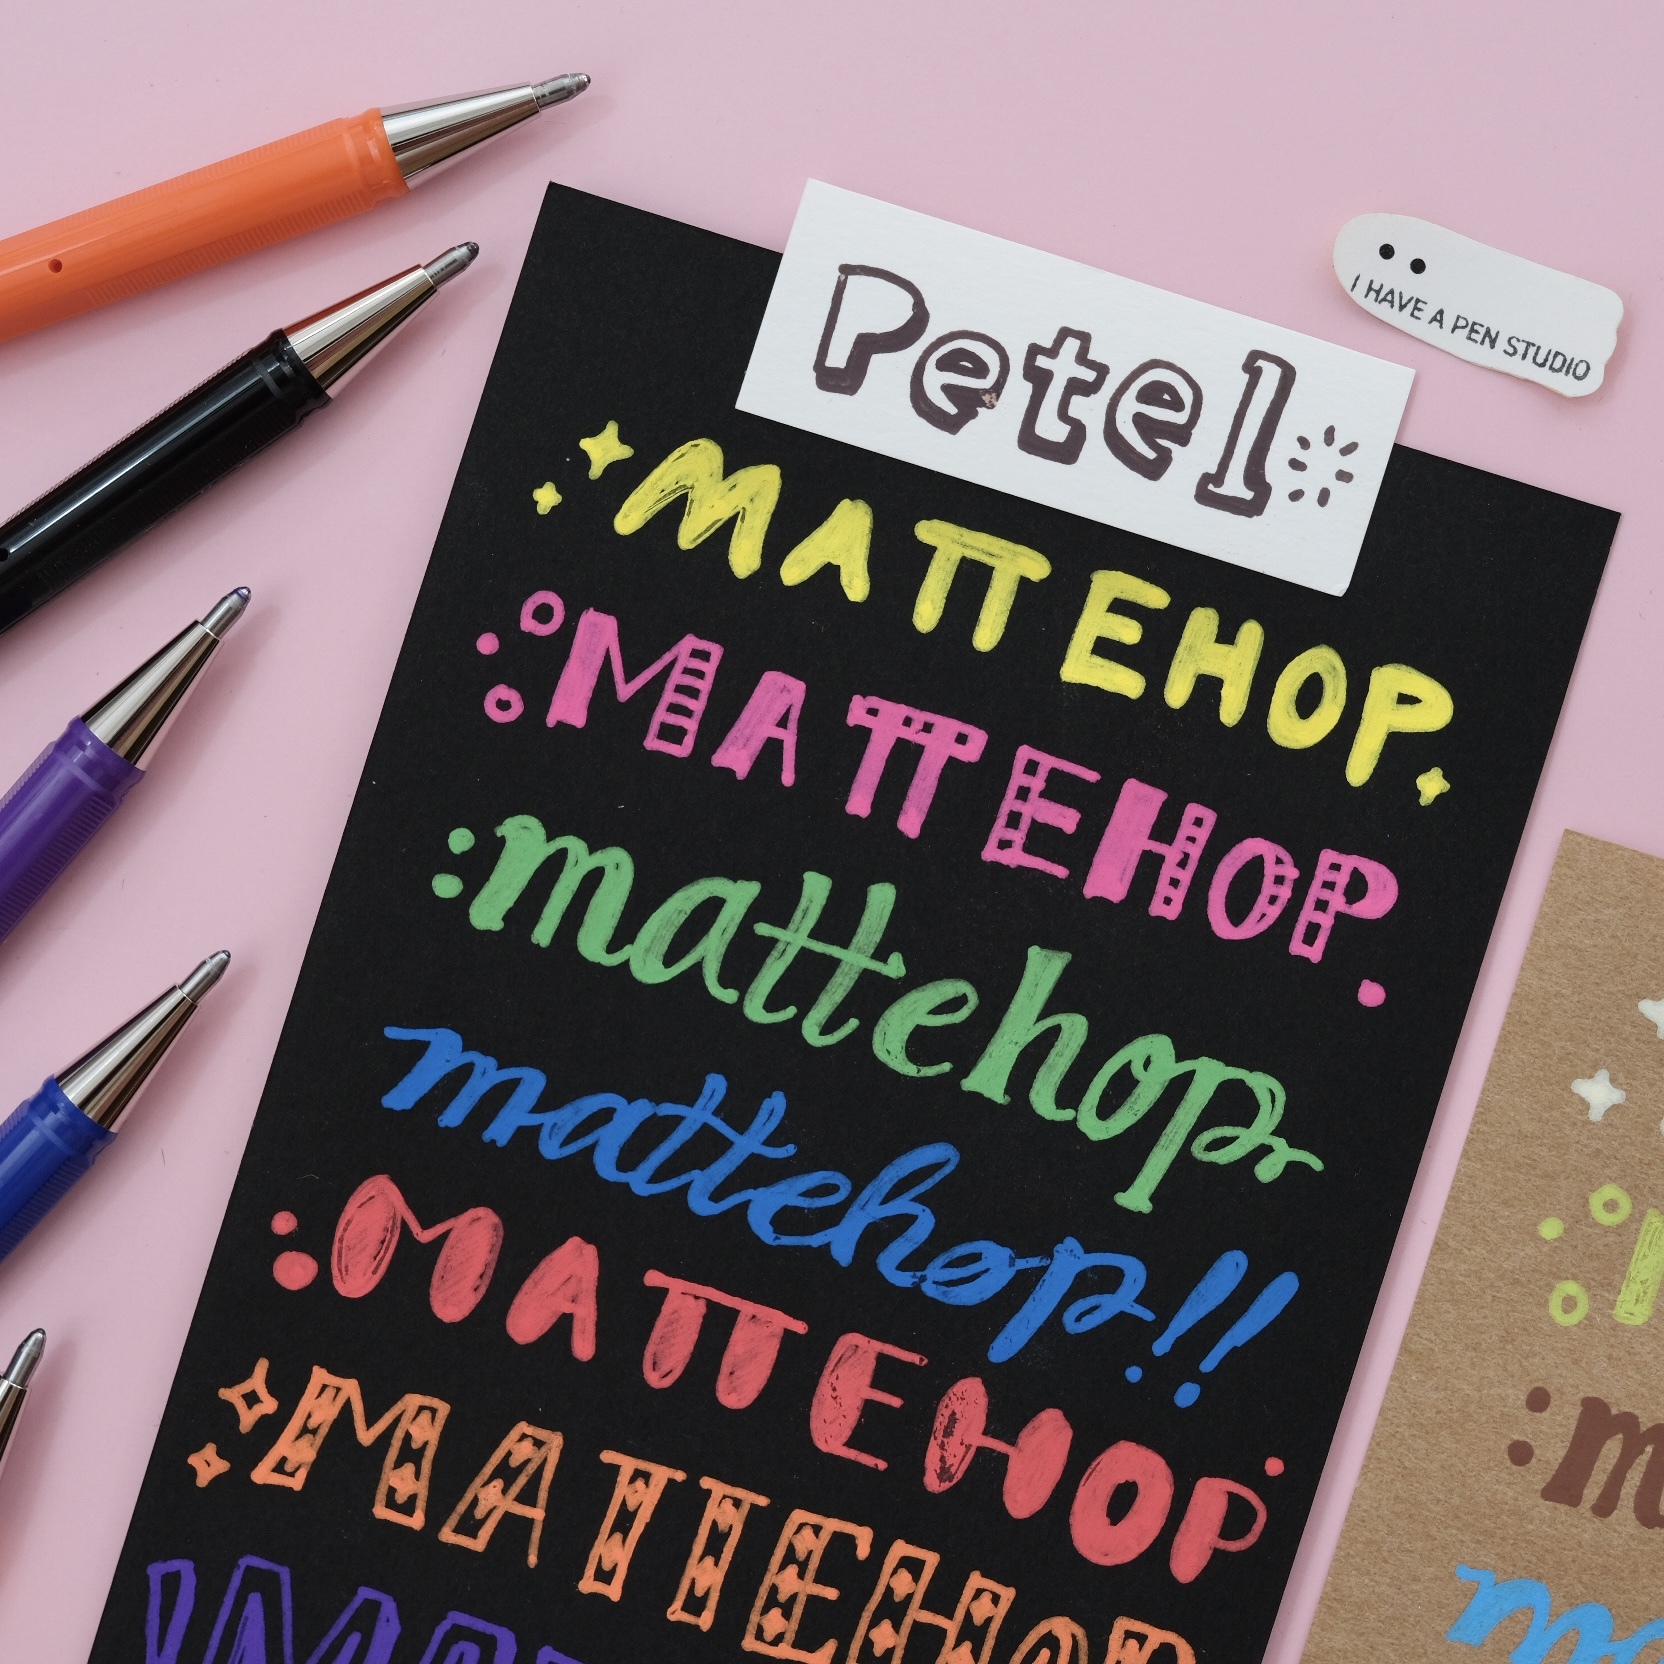 Petel
I HAVE A PEN STUDIO
MATTEHOP
MATTEHOP
mattehop
mattehop!!
MATTEHOP
MATTEHOP